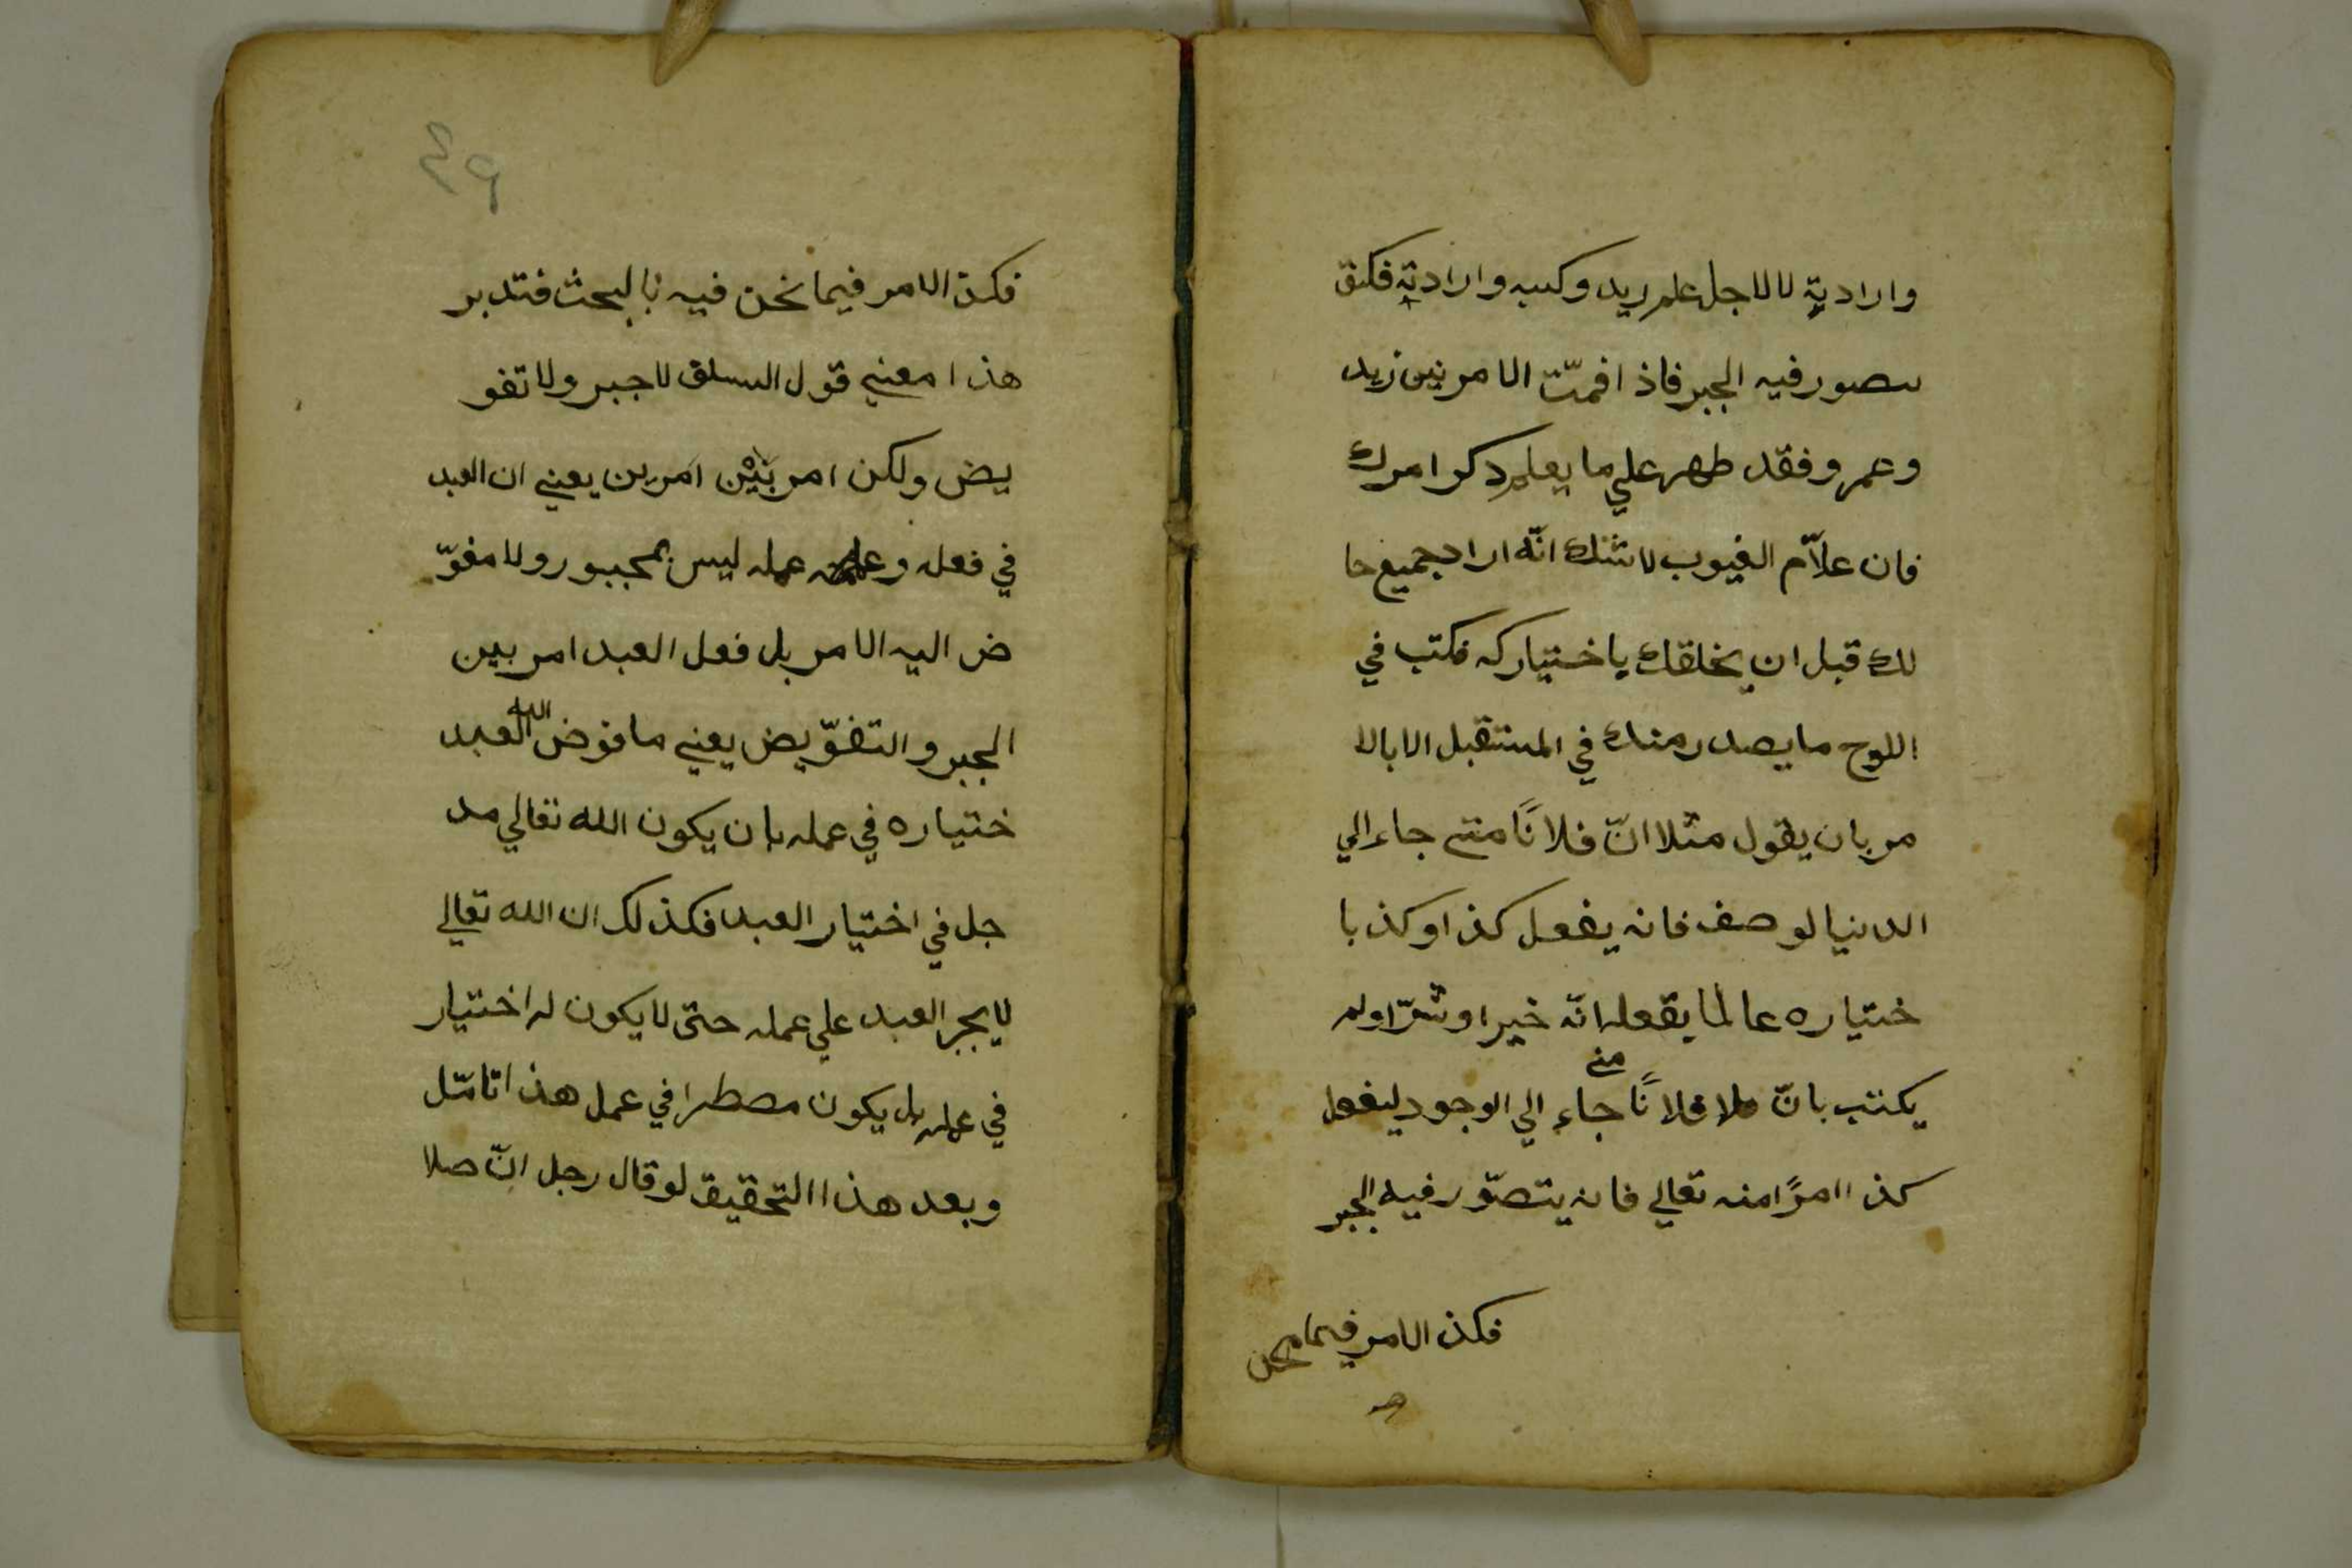 وارادية لا لاجل علم زيد وكسبه وارادية فكيف
يتصور فيه الجبر فاذا فهمت الامر بين زيد
وعمر وفقد ظهر علي ما يعلم ذكر امرك
فان علاّم الغيوب لا شك انّه اراد جميع حا
لك قبل ان يخلقك باختيار كه فكتب في
اللوح ما يصدر منك في المستقبل الا بالا
مر بان يقول مثلا انّ فلانًا متي جاء الي
الدنيا لوصف فانه يفعل كذا وكذ با
ختياره عالما يفعله انّه خيرا وشرّا ولم
يكتب بانّ فلانًا متي جاء الي الوجود ليفعل
كذا امرًا منه تعالي فانه يتصوّر فيه الجبر
فكذ الامر فيما نحن
٤٩
فكذ الامر فيما نحن فيه بالبحث فتدبر
هذا معني قول السلف لا جبر ولا تفو
يض ولكن امر بَيْن امرين يعني ان العبد
في فعله وعمله ليس بمجبور ولا مفوّ
ض اليه الامر بل فعل العبد امر بين
الجبر والتفوّيض يعني ما فوض الله العبد
ختياره في عمله بان يكون الله تعالي مد
جل في اختيار العبد فكذلك ان الله تعالي
لا يجبر العبد علي عمله حتى لا يكون له اختيار
في عمله بل يكون مصطرا في عمل هذا تامّل
وبعد هذا التحقيق لو قال رجل انّ صلا